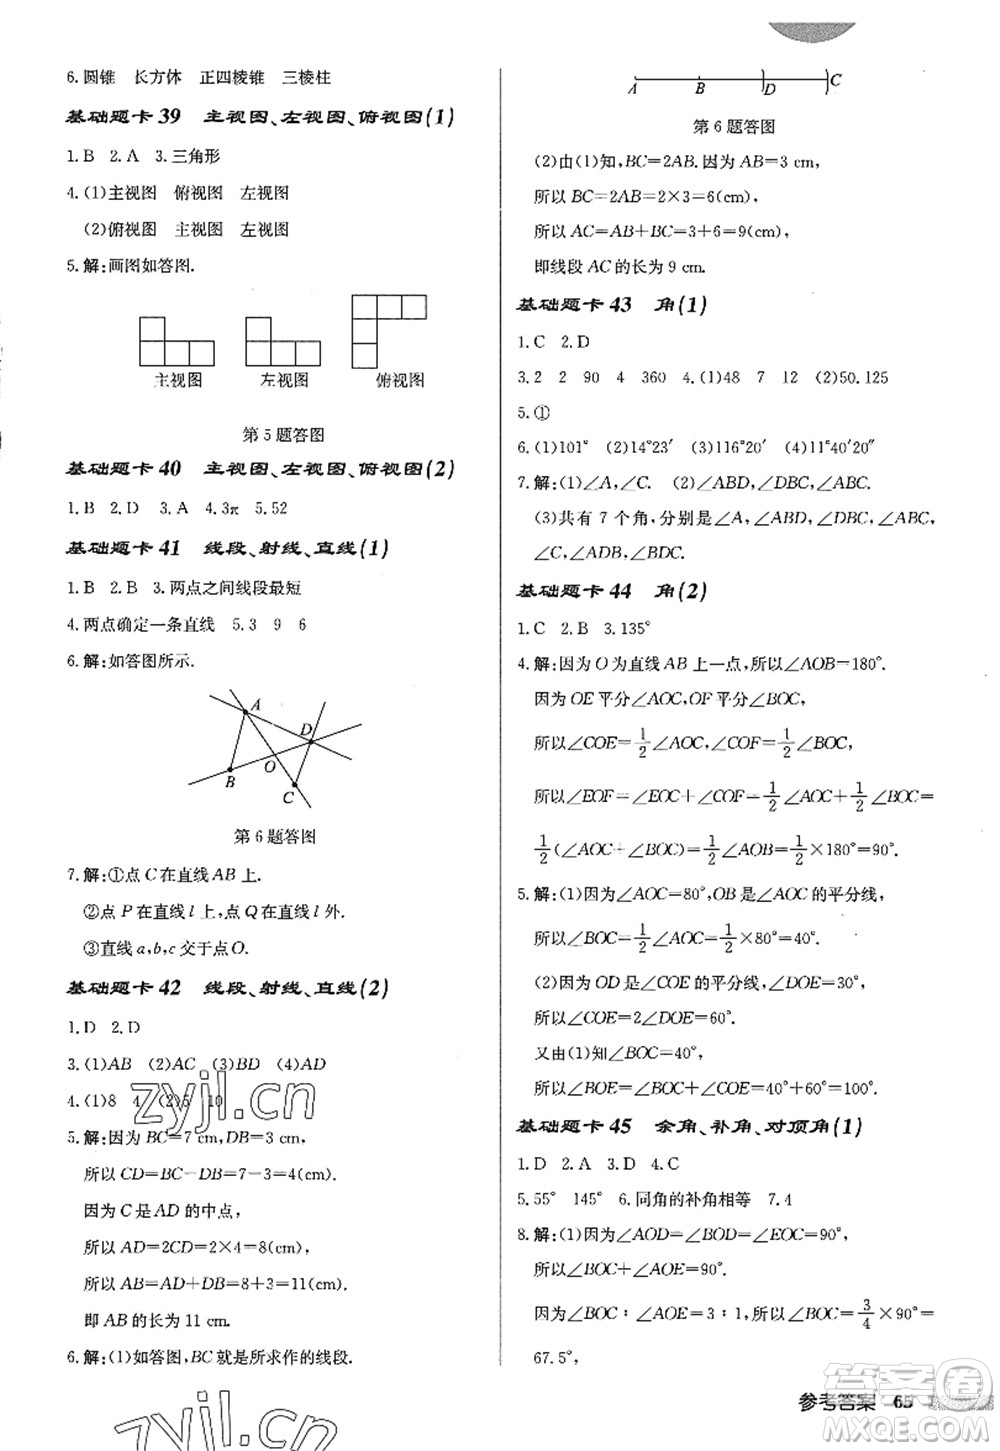 6.圆锥 长方体 正四棱锥 三棱柱
基础题卡 39 主视图、左视图、俯视图(1)
1.B 2.A 3.三角形
4.(1)主视图 俯视图 左视图
(2)俯视图 主视图 左视图
5.解:画图如答图.
主视图 左视图 俯视图
第5题答图
基础题卡 40 主视图、左视图、俯视图(2)
1.B 2.D 3.A 4.3π 5.52
基础题卡 41 线段、射线、直线(1)
1.B 2.B 3.两点之间线段最短
4.两点确定一条直线 5.3 9 6
6.解:如答图所示.
A
D
O
B
C
第6题答图
7.解:①点C在直线AB上.
②点P在直线l上,点Q在直线l外.
③直线a,b,c交于点O.
基础题卡 42 线段、射线、直线(2)
1.D 2.D
3.(1)AB (2)AC (3)BD (4)AD
4.(1)8 4 (2)5 10
5.解:因为BC=7 cm,DB=3 cm,
所以CD=BC-DB=7-3=4(cm).
因为C是AD的中点,
所以AD=2CD=2×4=8(cm),
所以AB=AD+DB=8+3=11(cm).
即AB的长为11 cm.
6.解:(1)如答图,BC就是所求作的线段.
A B D C
第6题答图
(2)由(1)知,BC=2AB.因为AB=3 cm,
所以BC=2AB=2×3=6(cm),
所以AC=AB+BC=3+6=9(cm),
即线段AC的长为9 cm.
基础题卡 43 角(1)
1.C 2.D
3.2 2 90 4 360 4.(1)48 7 12 (2)50.125
5.①
6.(1)101° (2)14°23′ (3)116°20′ (4)40′20″
7.解:(1)∠A,∠C. (2)∠ABD,∠DBC,∠ABC.
(3)共有7个角,分别是∠A,∠ABD,∠DBC,∠ABC,
∠C,∠ADB,∠BDC.
基础题卡 44 角(2)
1.C 2.B 3.135°
4.解:因为O为直线AB上一点,所以∠AOB=180°.
因为OE平分∠AOC,OF平分∠BOC,
所以∠COE=1/2∠AOC,∠COF=1/2∠BOC,
所以∠EOF=∠EOC+∠COF=1/2∠AOC+1/2∠BOC=
1/2(∠AOC+∠BOC)=1/2∠AOB=1/2×180°=90°.
5.解:(1)因为∠AOC=80°,OB是∠AOC的平分线,
所以∠BOC=1/2∠AOC=1/2×80°=40°.
(2)因为OD是∠COE的平分线,∠COD=30°,
所以∠COE=2∠DOE=60°.
又由(1)知∠BOC=40°,
所以∠BOE=∠BOC+∠COE=40°+60°=100°.
基础题卡 45 余角、补角、对顶角(1)
1.D 2.A 3.D 4.C
5.55° 145° 6.同角的补角相等 7.4
8.解:(1)因为∠AOD=∠BOD=∠EOC=90°,
所以∠BOC+∠AOE=90°.
因为∠BOC∶∠AOE=3∶1,所以∠BOC=3/4×90°=
67.5°,
参考答案 65
zyjl.cn
zyjl.cn
答案圈
MXQE.COM